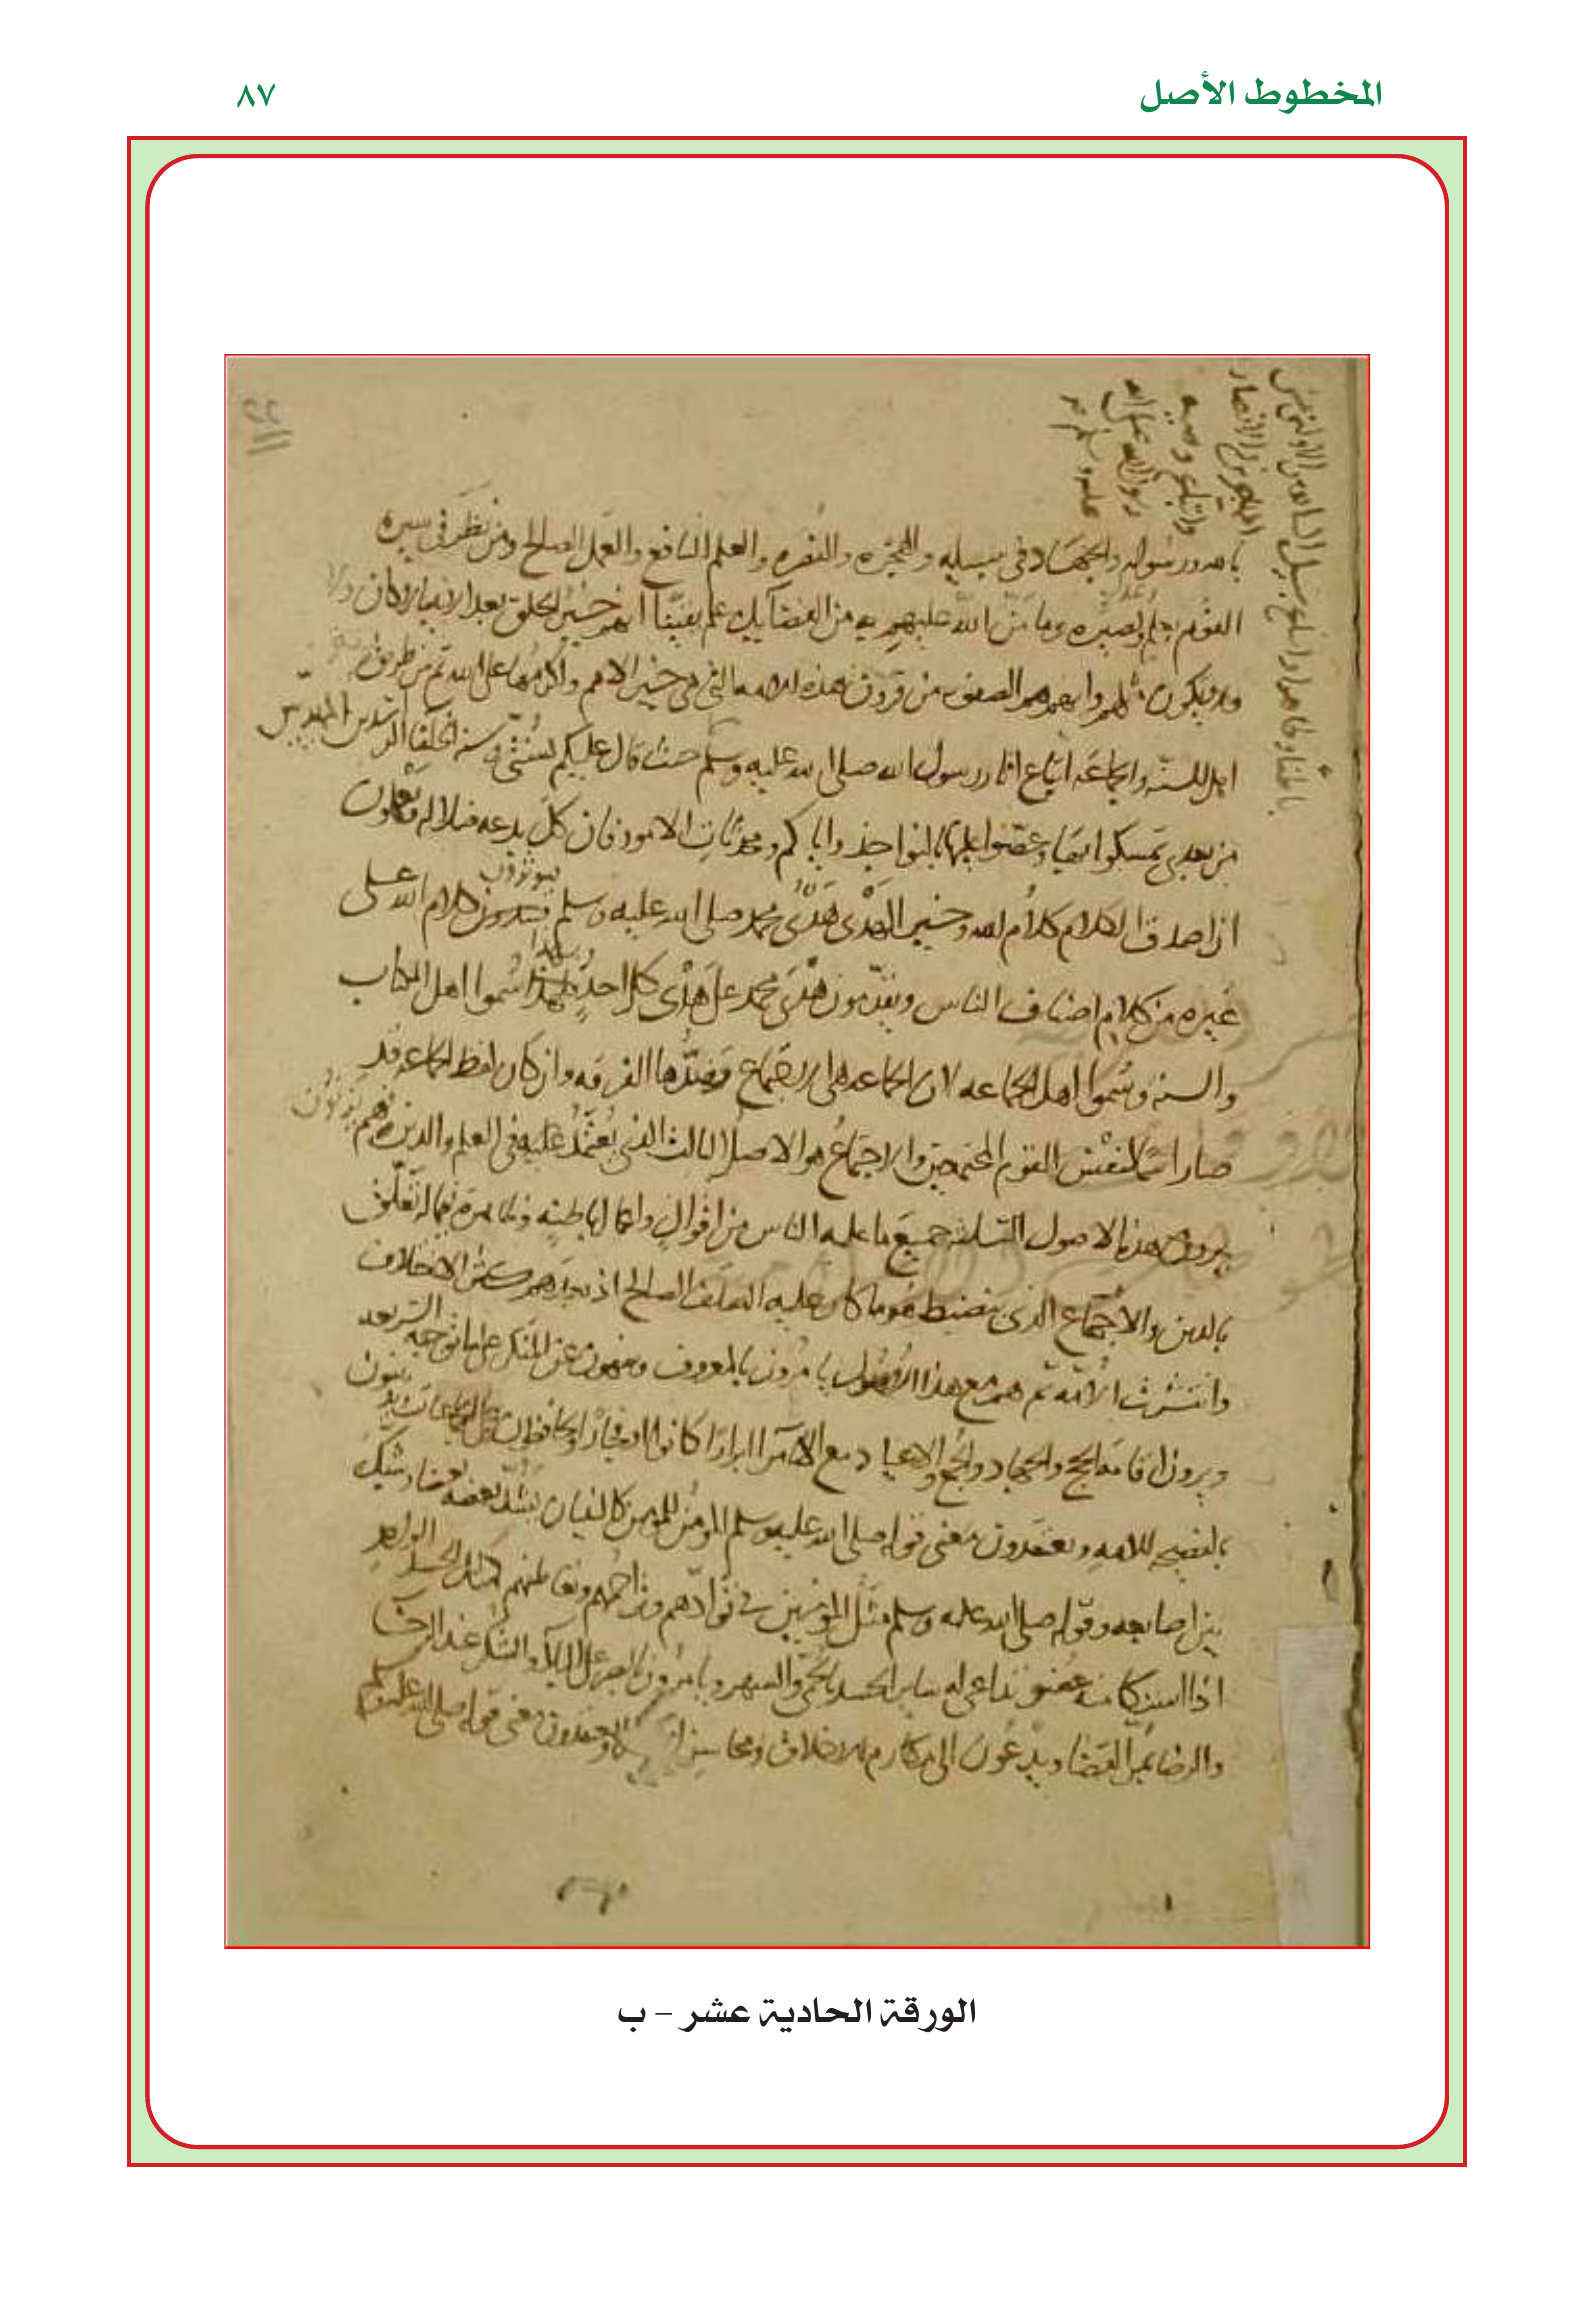 المخطوط الأصل
٨٧
بالله ورسوله والجهاد في سبيله والهجره والنصره والعلم النافع والعمل الصالح ومن نظر في سيره
القوم بعلم وبصيره وما من الله عليهم به من الفضايل علم يقينا انهم خير الخلق بعد الانبيا لا كان ولا
ولا يكون مثلهم وانهم هم الصفوه من قرون هذه الامه التي هي خير الامم واكرمها على الله ثم من طريق
اهل السنه والجماعه اتباع اثار رسول الله صلى الله عليه وسلم حيث قال عليكم بسنتي وسنه الخلفا الراشدين المهديين
من بعدي تمسكوا بها وعضوا عليها بالنواجذ واياكم ومحدثات الامور فان كل بدعه ضلاله ويعلمون
ان اصدق الكلام كلام الله وخير الهدي هدي محمد صلى الله عليه وسلم
يوثرون
كلام الله على
غيره من كلام اصناف الناس ويقدمون هدي محمد على هدي كل احد
ولهذا
سموا اهل الكتاب
والسنه وسموا اهل الجماعه لان الجماعه هي الاجتماع وضدها الفرقه وان كان لفظ الجماعه قد
صار اسما لنفس القوم المجتمعين والاجماع هو الاصل الثالث الذي يعتمد عليه في العلم والدين وهم يزنون
بهذه الاصول الثلثه جميع ما عليه الناس من اقوال واعمال باطنه وظاهره مما له تعلق
بالدين والاجماع الذي ينضبط هو ما كان عليه السلف الصالح اذ بعدهم كثر الاختلاف
وانتشرت الامه ثم هم مع هذا الاصول يامرون بالمعروف وينهون عن المنكر على ما توجبه الشريعه
ويرون اقامه الحج والجهاد والجمع والاعياد مع الامرا ابرارا كانوا او فجارا ويحافظون على الجماعات ويدينون
بالنصيحه للامه ويعتقدون معنى قوله صلى الله عليه وسلم المومن للمومن كالبنيان يشد بعضه بعضا وشبك
بين اصابعه وقوله صلى الله عليه وسلم مثل المومنين في توادهم وتراحمهم وتعاطفهم كمثل الجسد الواحد
اذا اشتكا منه عضو تداعى له ساير الجسد بالحمى والسهر ويامرون بالصبر على البلا والشكر عند الرخا
والرضا بمر القضا ويدعون الى مكارم الاخلاق ومحاسن الاعمال ويعتقدون معنى قوله صلى الله عليه وسلم
باطنا وظاهرا واتباع سبيل السابقين الاولين من
المهاجرين والانصار
واتباع وصيه
رسول الله صلى الله
عليه وسلم
الورقة الحادية عشر – ب